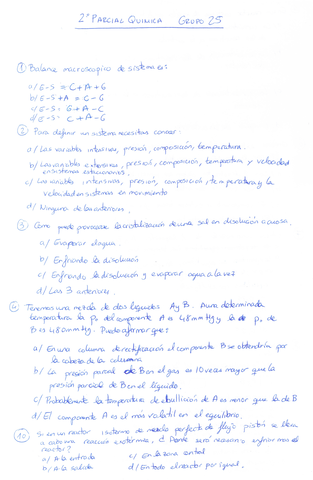 2º PARCIAL QUIMICA GRUPO 25
① Balance macroscopico de sistema es:
a/ E-S = C+A+G
b/ E-S+A = C-G
c/ E-S= G+A-C
d/ E-S= C+A-G
② Para definir un sistema necesitas conocer:
a/ Las variables intensivas, presión, composición, temperatura.
b/ Las variables extensivas, presión, composición, temperatura y velocidad
en sistemas estacionarios.
c/ Las variables intensivas, presión, composición, temperatura y la
velocidad en sistemas en movimiento
d/ Ninguna de las anteriores.
③ Como puede provocarse la cristalización de una sal en disolución acuosa.
a/ Evaporar el agua
b/ Enfriando la disolución
c/ Enfriando la disolución y evaporar agua a la vez
d/ Las 3 anteriores.
Tenemos una mezcla de dos liquidos A y B. A una determinada
temperatura la Pv del componente A es 48 mmHg y la de Pv de
B es 480 mmHg. Puede afirmar que:
a/ En una columna de rectificación el componente B se obtendría por
la cabeza de la columna
b/ La presión parcial de B en el gas es 10 veces mayor que la
presión parcial de B en el líquido.
c/ Probablemente la temperatura de ebullición de A es menor que la de B
d/ El componente A es el más volátil en el equilibrio.
⑩ Si en un reactor isotermo de mezcla perfecta de flujo pistón se lleva
a cabo una reacción exotermica, ¿Donde será necesario enfriar más el
reactor?
a/ A la entrada c/ En la zona central
b/ A la salida d/ En todo el reactor por igual.